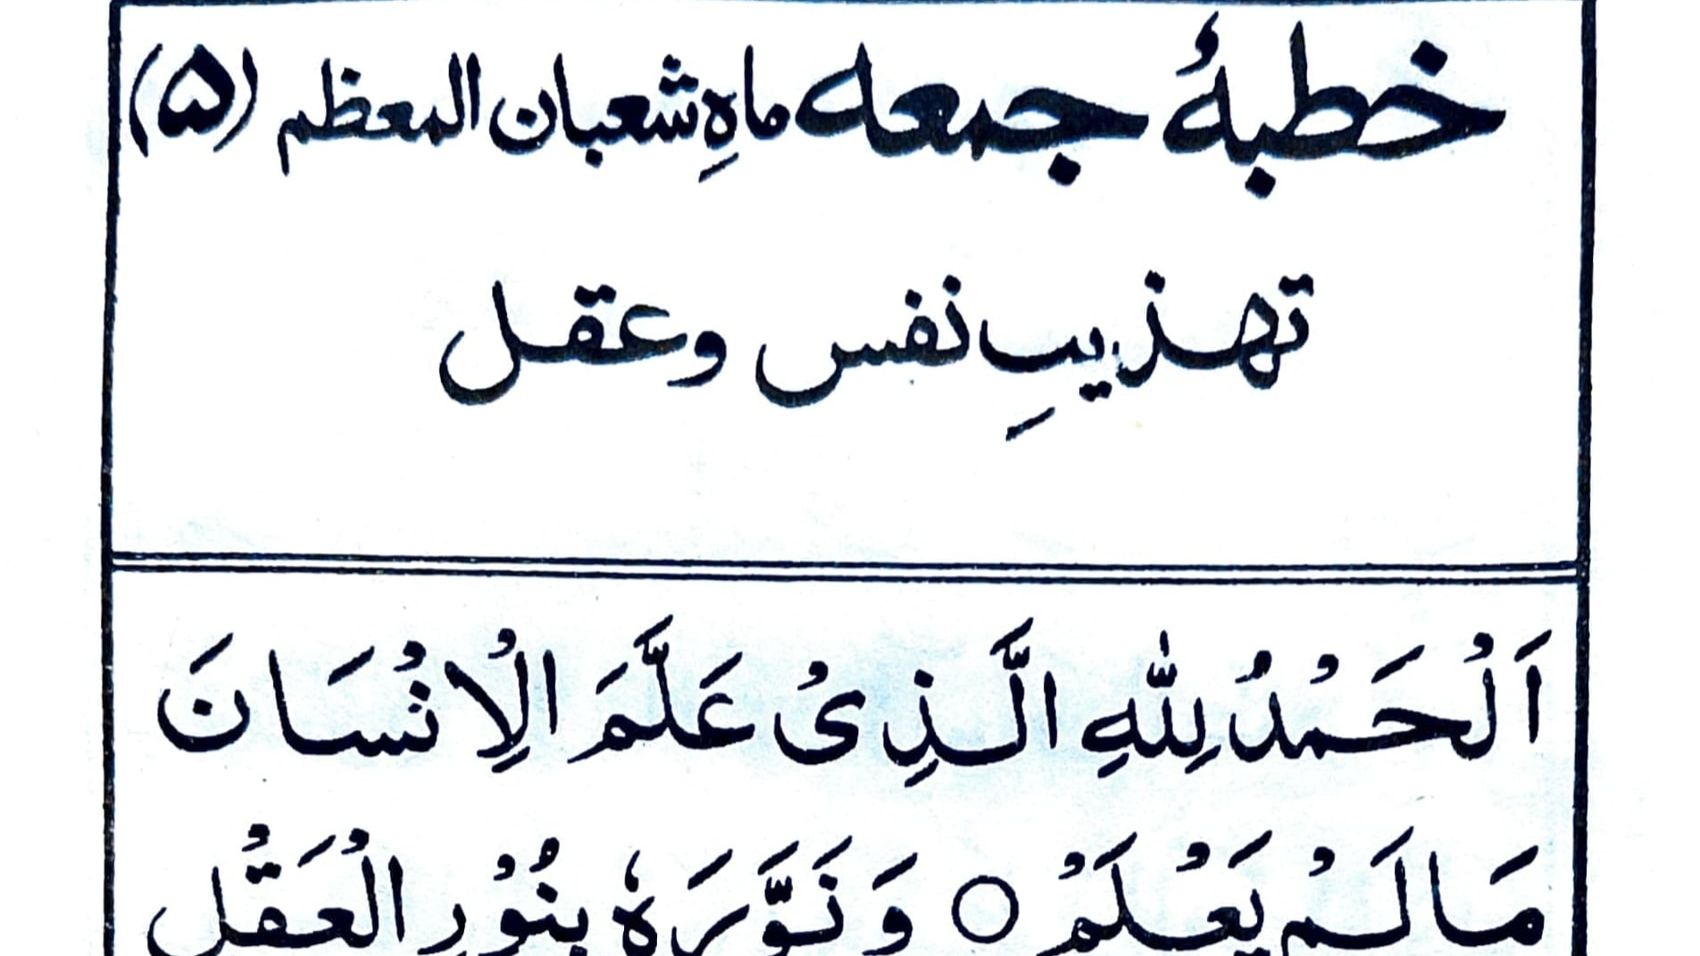 خطبۂ جمعہ ماہِ شعبان المعظم (۵)
تہذیبِ نفس وعقل
اَلْحَمْدُ لِلّٰهِ الَّذِیْ عَلَّمَ الْاِنْسَانَ
مَا لَمْ یَعْلَمْ ○ وَنَوَّرَهٗ بِنُوْرِ الْعَقْلِ